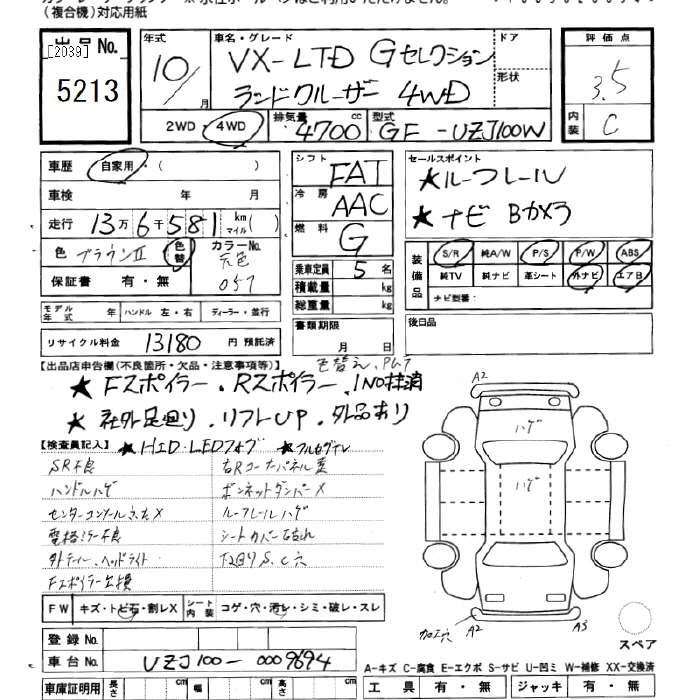 (複合機)対応用紙
出品No. [2039] 5213
年式 10/ 月
車名・グレード VX-LTD Gセレクション
ランドクルーザー 4WD
ドア
形状
評価点 3.5
内装 C
2WD 4WD 排気量 4700 cc 型式 GF-UZJ100W
車歴 自家用・( )
車検 年 月
走行 13万6千581 km マイル( )
色 ブラウンII 色替 カラーNo. 元色 057
保証書 有・無
シフト FAT
冷房 AAC
燃料 G
乗車定員 5 名
積載量 kg
総重量 kg
セールスポイント
★ルーフレール
★ナビ Bカメラ
装備品 S/R 純A/W P/S P/W ABS
純TV 純ナビ 革シート 外ナビ エアB
ナビ型番:
モデル年式 年 ハンドル 左・右 ディーラー・並行
書類期限 月 日
後日品
リサイクル料金 13180 円 預託済
【出品店申告欄(不良箇所・欠品・注意事項等)】
★Fスポイラー.Rスポイラー.1NO抹消
★社外足廻り.リフトUP.外品あり
【検査員記入】★HID.LEDフォグ ★フルセグTV
SR不良
右Rコーナーパネル
ハンドルハゲ
ボンネットダンパーX
ルーフレールハゲ
電格ミラー不良
シートカバー
外ティー、ヘッドライト
下廻りS.C穴
Fスポイラー
FW キズ・トビ石・割レX シート内装 コゲ・穴・汚レ・シミ・破レ・スレ
登録No.
車台No. UZJ100-0009694
車庫証明用 長さ cm 幅 cm 高さ cm
A2
ハゲ
ハゲ
加工穴 A2 A3
スペア
A-キズ C-腐食 E-エクボ S-サビ U-凹ミ W-補修 XX-交換済
工具 有・無 ジャッキ 有・無